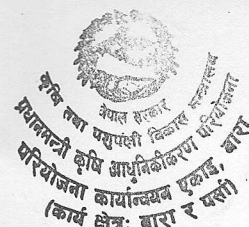 नेपाल सरकार
कृषि तथा पशुपंक्षी विकास मन्त्रालय
प्रधानमन्त्री कृषि आधुनिकीकरण परियोजना
परियोजना कार्यान्वयन एकाइ, बारा
(कार्य क्षेत्र: बारा र पर्सा)